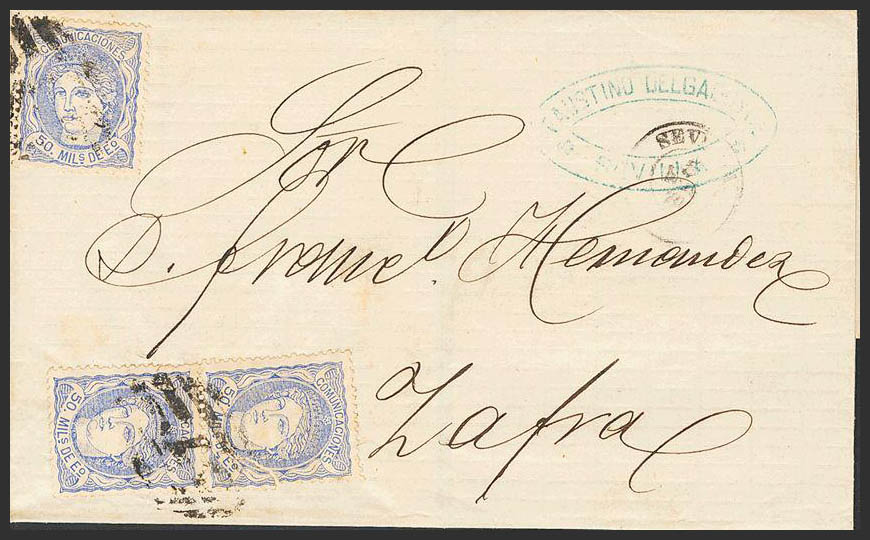 COMUNICACIONES
50. MILS DE EO
FAUSTINO DELGA
SEVILLA
SEV
Sor
D. Manuel Hernandez
Zafra
50. MILS DE EO
50. MILS DE EO
COMUNICACIONES